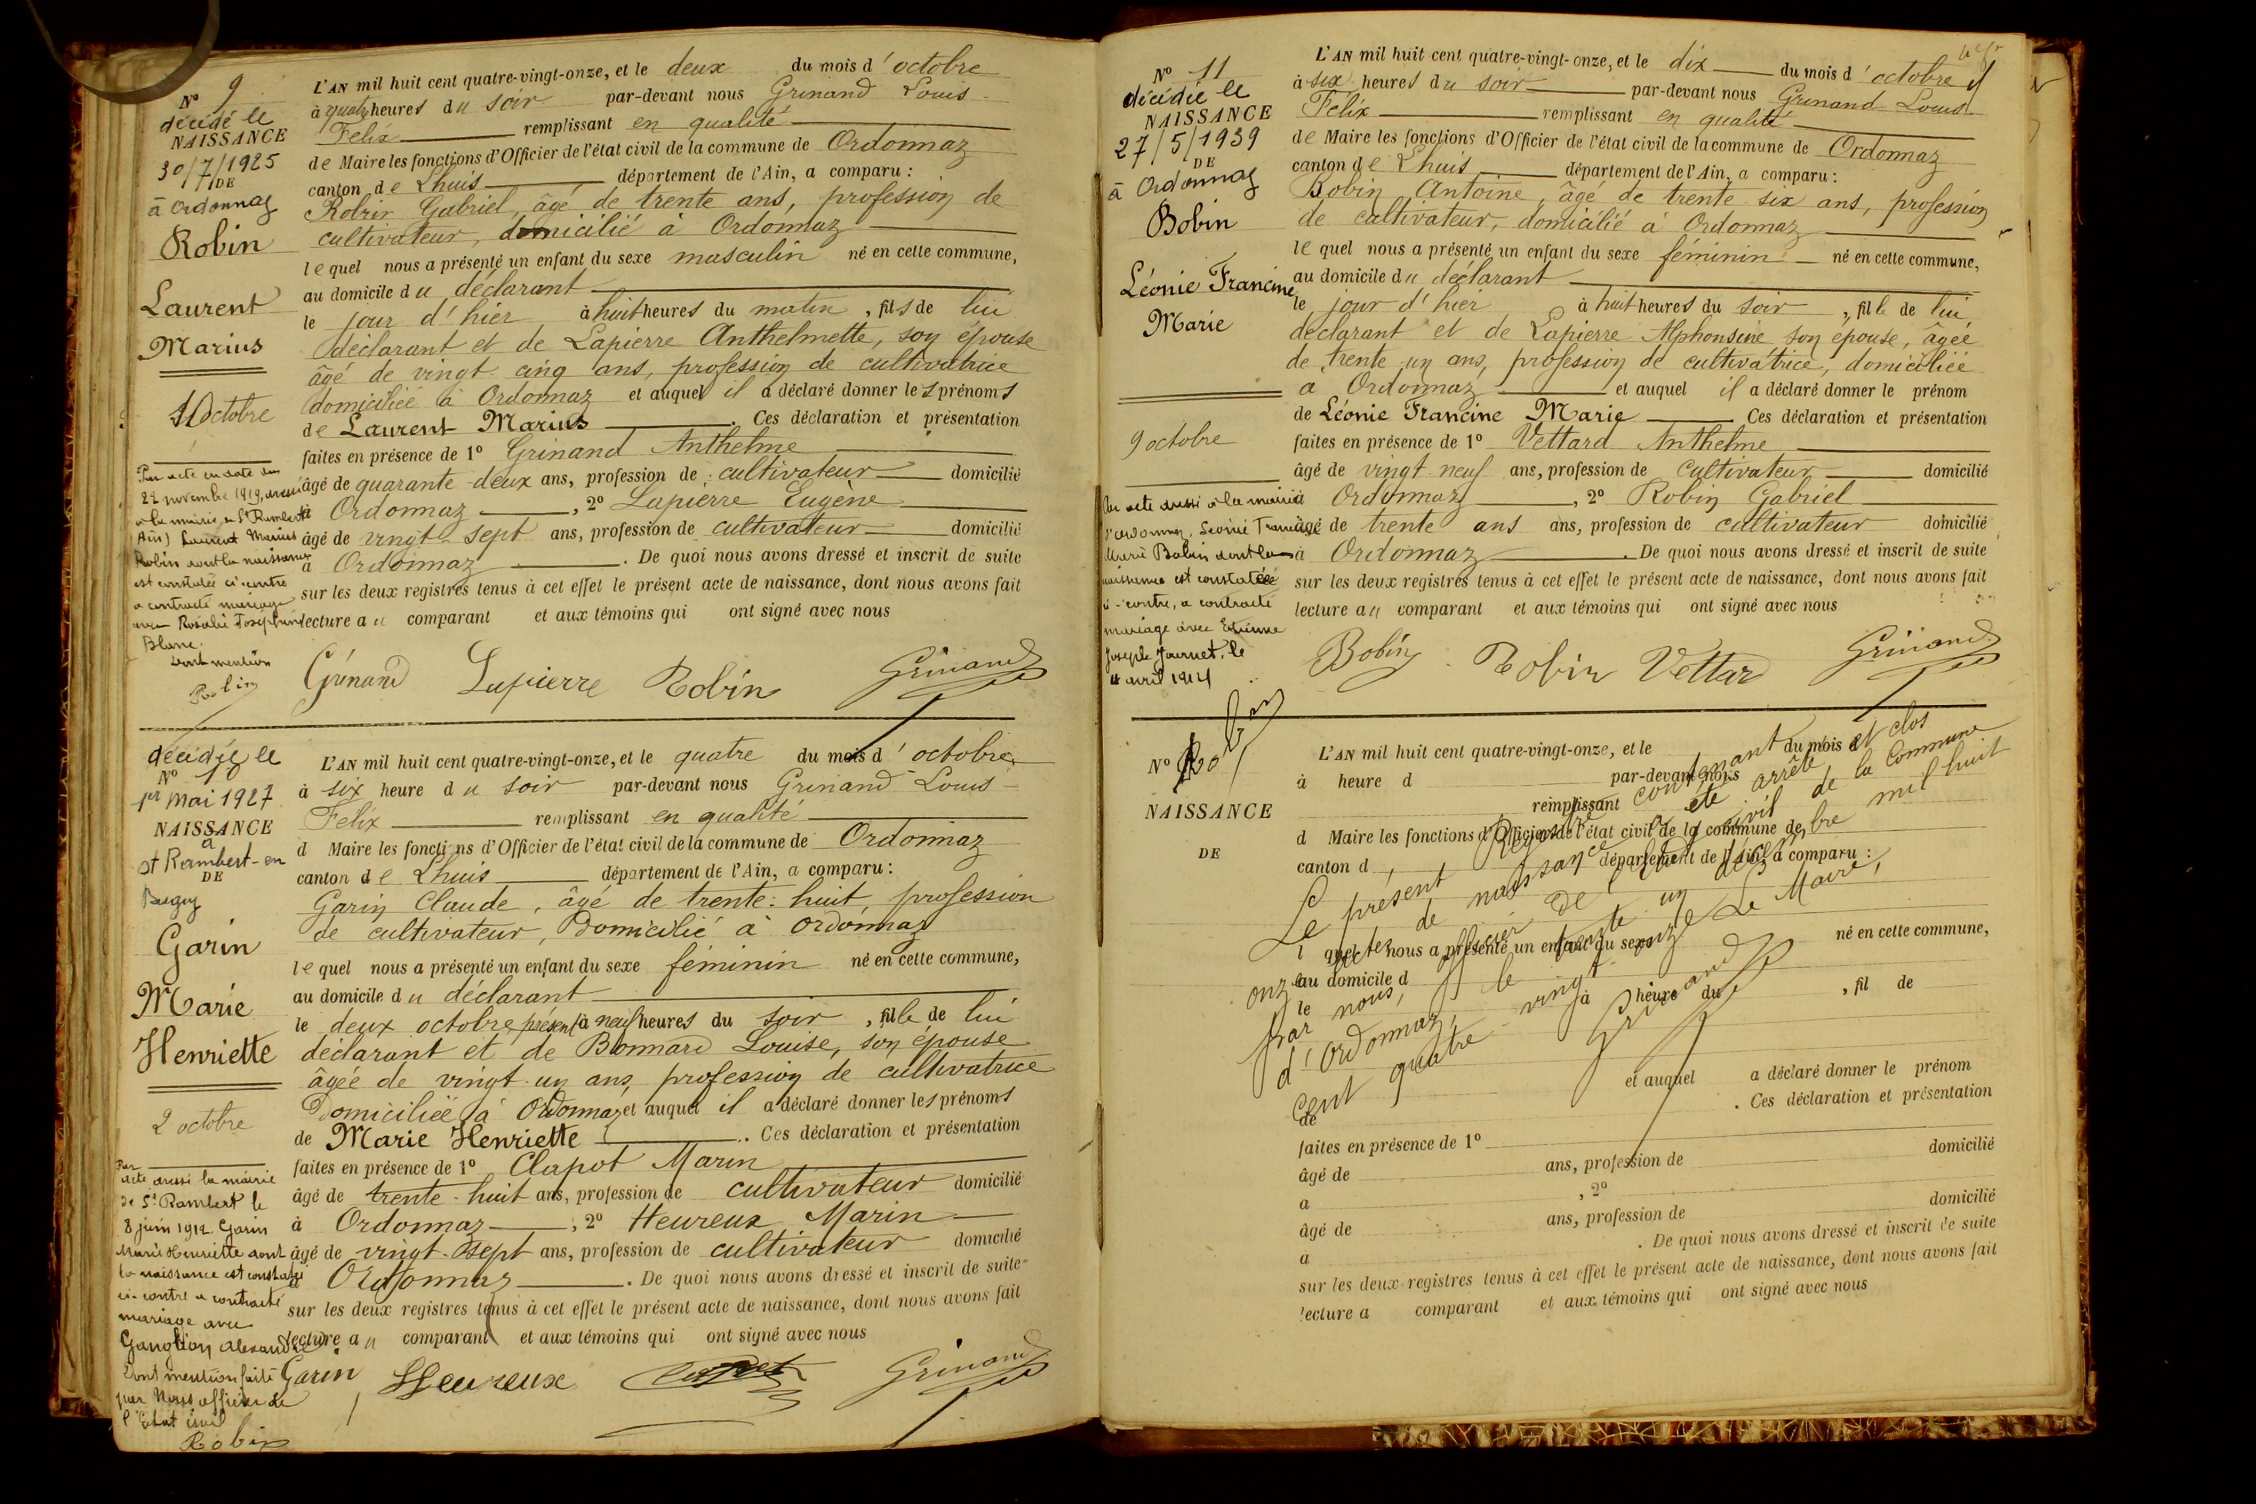 N° 9
décédé le
NAISSANCE
30/7/1925
DE
à Ordonnaz
Robin
Laurent
Marius
1 Octobre
Par acte en date du
22 novembre 1919, dressé
à la mairie de St Rambert
(Ain) Laurent Marius
Robin dont la naissance
est constatée ci-contre
a contracté mariage
avec Rosalie Joséphine
Blanc.
Dont mention
Robin
L'AN mil huit cent quatre-vingt-onze, et le deux du mois d'octobre
à quatre heures du soir par-devant nous Grinand Louis
Félix remplissant en qualité
de Maire les fonctions d'Officier de l'état civil de la commune de Ordonnaz
canton de Lhuis département de l'Ain, a comparu :
Robin Gabriel, âgé de trente ans, profession de
cultivateur, domicilié à Ordonnaz
lequel nous a présenté un enfant du sexe masculin né en cette commune,
au domicile du déclarant
le jour d'hier à huit heures du matin, fils de lui
déclarant et de Lapierre Anthelmette, son épouse
âgé de vingt cinq ans, profession de cultivatrice
domiciliée à Ordonnaz et auquel il a déclaré donner les prénoms
de Laurent Marius . Ces déclaration et présentation
faites en présence de 1° Grinand Anthelme
âgé de quarante-deux ans, profession de cultivateur domicilié
à Ordonnaz , 2° Lapierre Eugène
âgé de vingt-sept ans, profession de cultivateur domicilié
à Ordonnaz . De quoi nous avons dressé et inscrit de suite
sur les deux registres tenus à cet effet le présent acte de naissance, dont nous avons fait
lecture au comparant et aux témoins qui ont signé avec nous
Grinand Lapierre Robin Grinand
décédée le
N° 10
1er mai 1927
NAISSANCE
à
St Rambert-en
DE
Bugey
Garin
Marie
Henriette
2 octobre
Par
acte dressé la mairie
de St Rambert le
8 juin 1912 Garin
Marie Henriette dont
la naissance est constatée
ci-contre a contracté
mariage avec
Alexandre
Dont mention faite
par Nous officier de
l'Etat civil
Robin
L'AN mil huit cent quatre-vingt-onze, et le quatre du mois d'octobre
à six heure du soir par-devant nous Grinand Louis
Félix remplissant en qualité
d Maire les fonctions d'Officier de l'état civil de la commune de Ordonnaz
canton de Lhuis département de l'Ain, a comparu :
Garin Claude, âgé de trente-huit, profession
de cultivateur, Domicilié à Ordonnaz
lequel nous a présenté un enfant du sexe féminin né en cette commune,
au domicile du déclarant
le deux octobre présent à neuf heures du soir, fille de lui
déclarant et de Bonnard Louise, son épouse
âgée de vingt-un ans, profession de cultivatrice
Domiciliée à Ordonnaz et auquel il a déclaré donner les prénoms
de Marie Henriette . Ces déclaration et présentation
faites en présence de 1° Clapot Marin
âgé de trente-huit ans, profession de cultivateur domicilié
à Ordonnaz , 2° Heureux Marin
âgé de vingt-sept ans, profession de cultivateur domicilié
à Ordonnaz . De quoi nous avons dressé et inscrit de suite
sur les deux registres tenus à cet effet le présent acte de naissance, dont nous avons fait
lecture au comparant et aux témoins qui ont signé avec nous
Garin Heureux Clapot Grinand
N° 11
décédée le
NAISSANCE
27/5/1939
DE
à Ordonnaz
Bobin
Léonie Francine
Marie
9 octobre
Par acte dressé à la mairie
d'Ordonnaz, Léonie Francine
Marie Bobin dont la
naissance est constatée
ci-contre, a contracté
mariage avec Etienne
Joseph Journet, le
avril 1914
Robin
L'AN mil huit cent quatre-vingt-onze, et le dix du mois d'octobre
à six heures du soir par-devant nous Grinand Louis
Félix remplissant en qualité
de Maire les fonctions d'Officier de l'état civil de la commune de Ordonnaz
canton de Lhuis département de l'Ain, a comparu :
Bobin Antoine, âgé de trente six ans, profession
de cultivateur, domicilié à Ordonnaz
lequel nous a présenté un enfant du sexe féminin né en cette commune,
au domicile du déclarant
le jour d'hier à huit heures du soir, fille de lui
déclarant et de Lapierre Alphonsine son épouse, âgée
de trente-un ans, profession de cultivatrice, domiciliée
à Ordonnaz et auquel il a déclaré donner le prénom
de Léonie Francine Marie Ces déclaration et présentation
faites en présence de 1° Vettard Anthelme
âgé de vingt-neuf ans, profession de cultivateur domicilié
à Ordonnaz , 2° Robin Gabriel
âgé de trente ans ans, profession de cultivateur domicilié
à Ordonnaz . De quoi nous avons dressé et inscrit de suite
sur les deux registres tenus à cet effet le présent acte de naissance, dont nous avons fait
lecture au comparant et aux témoins qui ont signé avec nous
Bobin Robin Vettard Grinand
N°
NAISSANCE
DE
L'AN mil huit cent quatre-vingt-onze, et le du mois d
à heure d par-devant nous
remplissant
d Maire les fonctions d'Officier de l'état civil de la commune de
canton d département de l'Ain, a comparu :
l quel nous a présenté un enfant du sexe né en cette commune,
au domicile d
le à heure du , fil de
et auquel a déclaré donner le prénom
de . Ces déclaration et présentation
faites en présence de 1°
âgé de ans, profession de domicilié
a , 2°
âgé de ans, profession de domicilié
a . De quoi nous avons dressé et inscrit de suite
sur les deux registres tenus à cet effet le présent acte de naissance, dont nous avons fait
lecture a comparant et aux témoins qui ont signé avec nous
Le présent Registre contenant
onze actes de naissance a été arrêté et clos
par nous, officier de l'état civil de la Commune
d'Ordonnaz, le trente un décembre mil huit
cent quatre-vingt-onze Le Maire,
Grinand